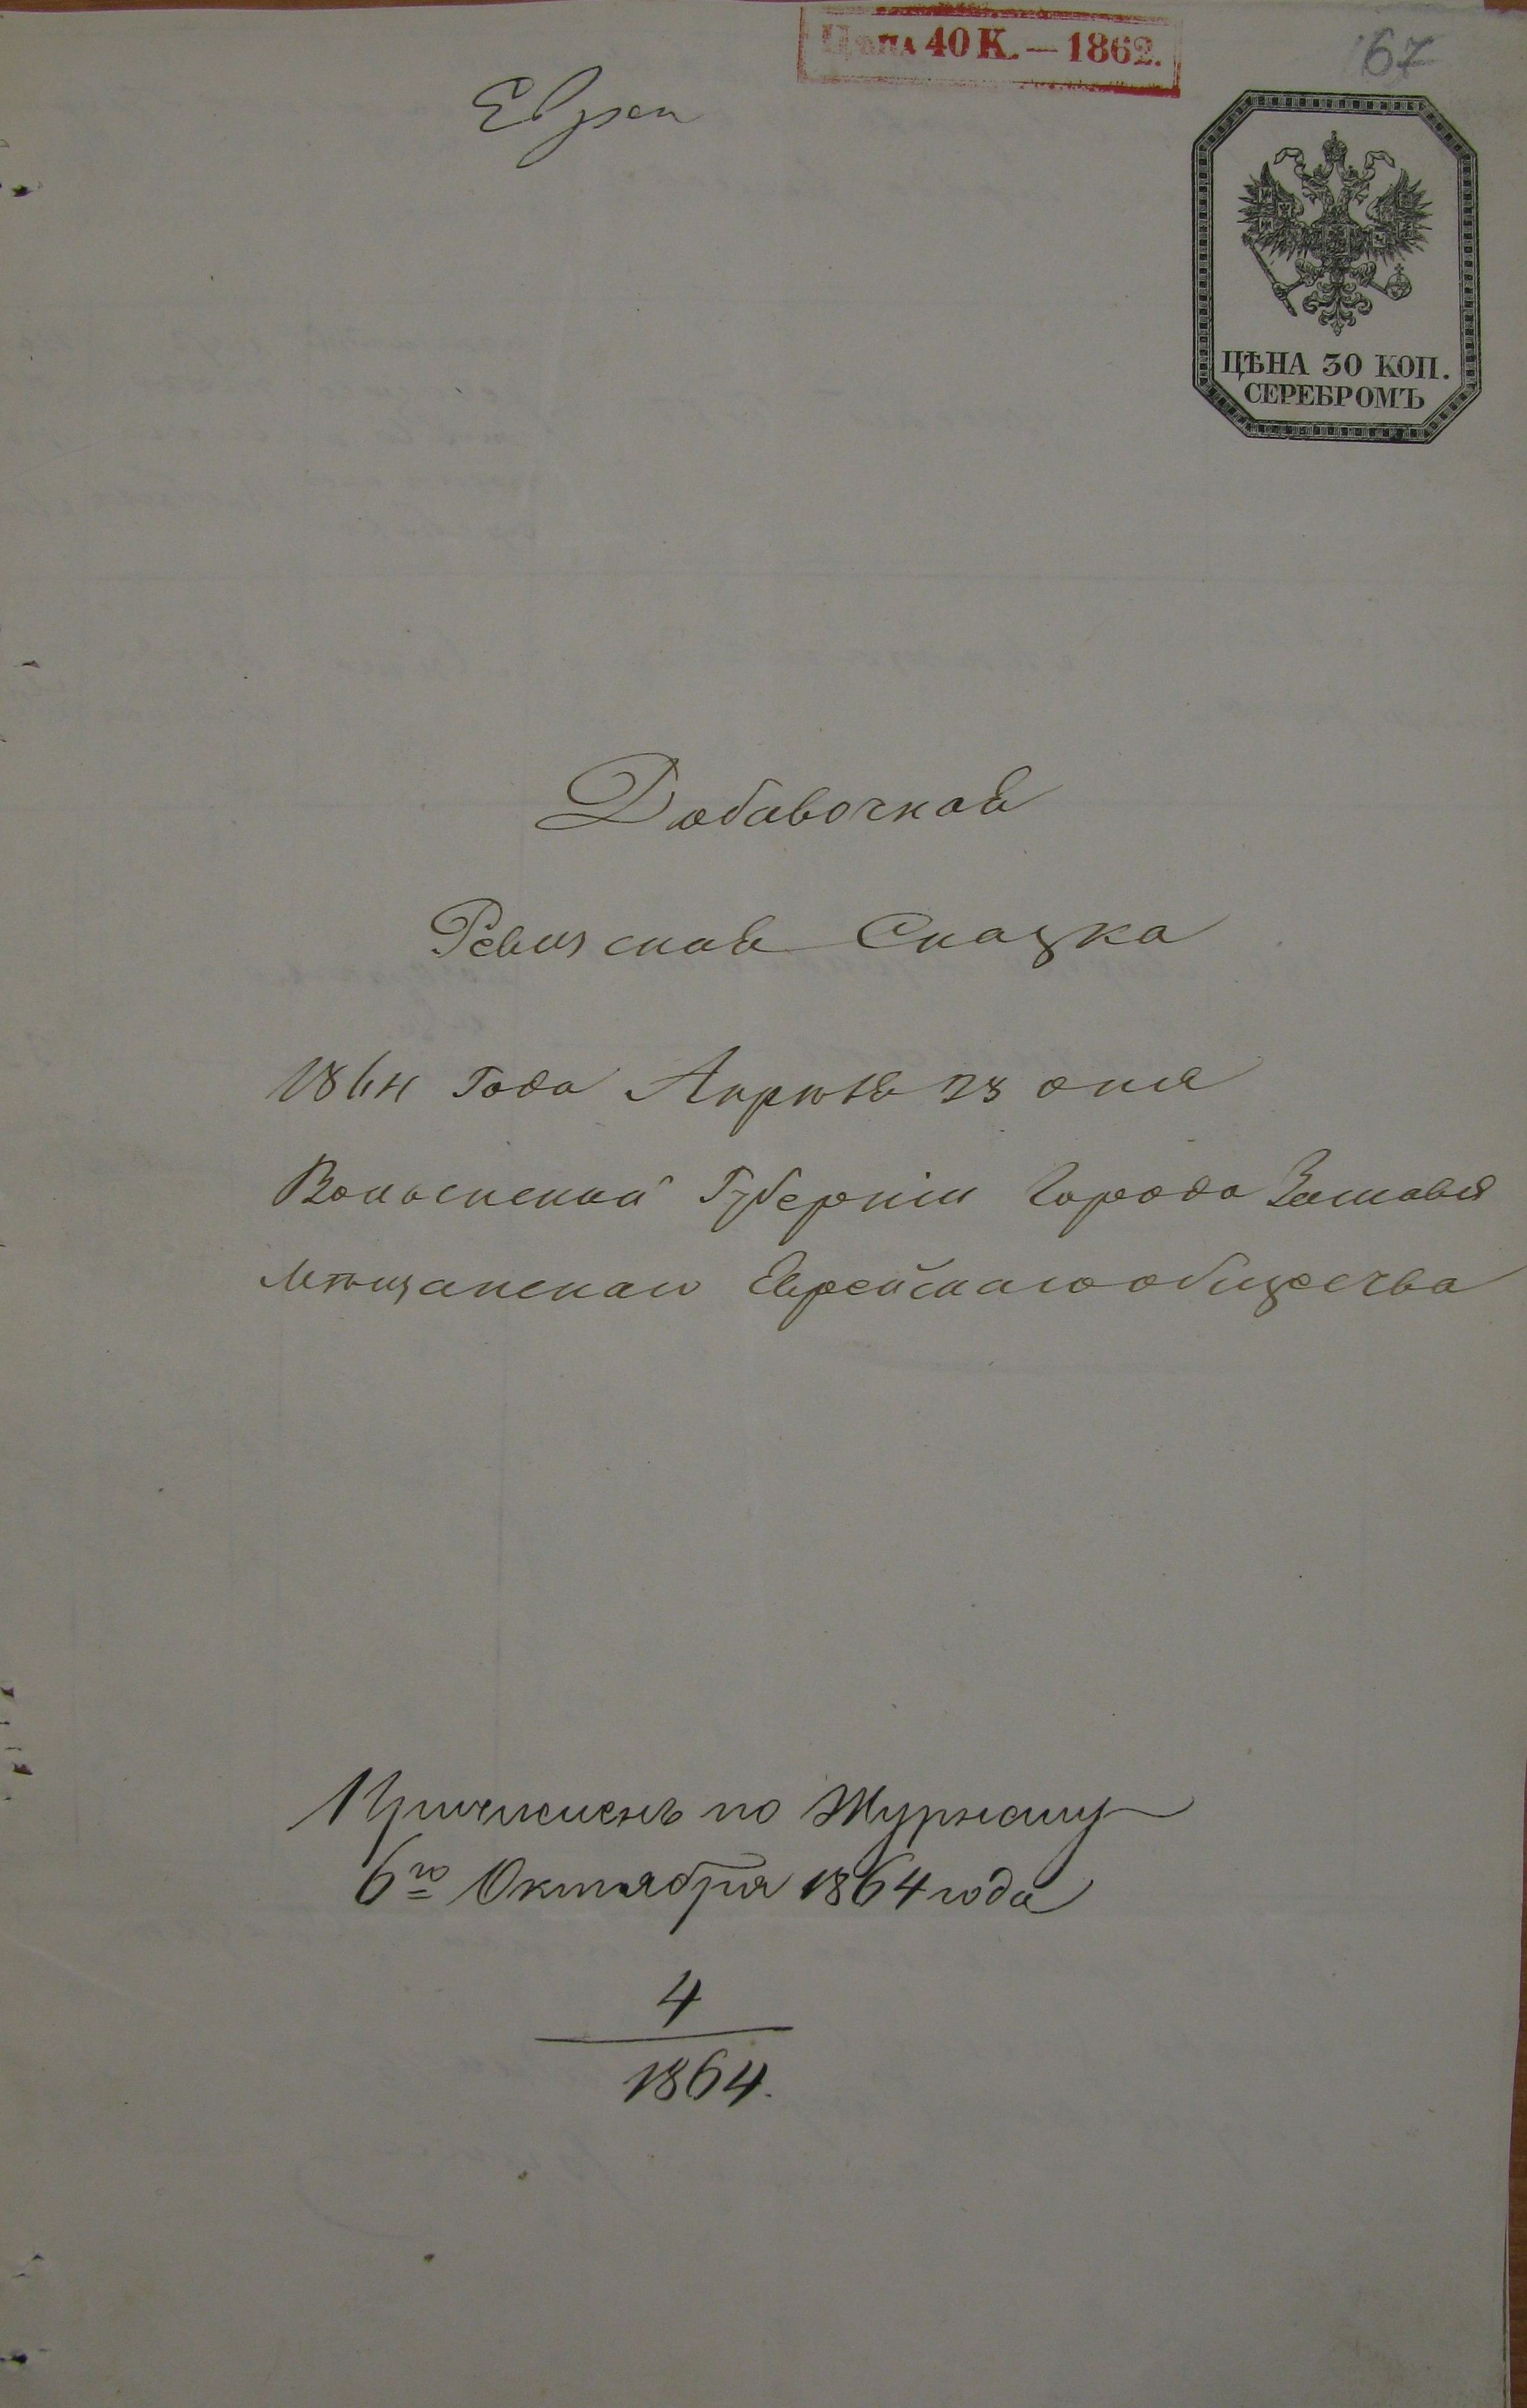 Цѣна 40 К. — 1862.
167
Евреи
ЦѢНА 30 КОП.
СЕРЕБРОМЪ
Добавочная
Ревизская Сказка
1864 Года Апрѣля 23 дня
Волынской Губерніи Города Заславля
Мѣщанскаго Еврейскаго общества
Причисленъ по Журналу
6го Октября 1864 года
4
1864.